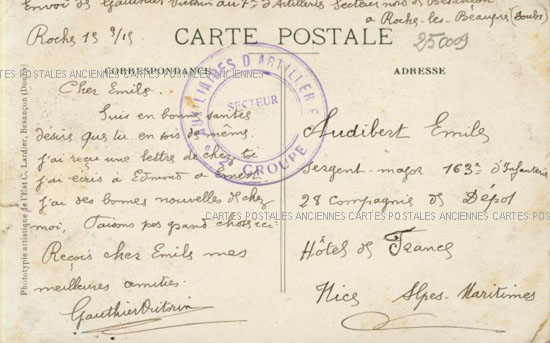 Envoi de Gauthier Victrin au 7e d'Artillerie Secteur nord de Besançon
à Roche-les-Beaupré (Doubs)
Roche 15 9/15
25009
CARTE POSTALE
CORRESPONDANCE
ADRESSE
CARTES POSTALES ANCIENNES CARTES POSTALES ANCIENNES CARTES POSTALES ANCIENNES CARTES POSTALES
Phototypie artistique de l'Est C. Lardier, Besançon (Doubs)
AUXILIAIRES D'ARTILLERIE
SECTEUR
GROUPE
Cher Emile.
Suis en bonne santée
désire que tu en sois de même.
j'ai reçu une lettre de chez toi
j'ai écris à Edmond à Ernest
j'ai des bonnes nouvelles de chez
moi. Faisons pas grand chose ici.
Reçois cher Emile mes
meilleures amitiés.
Gauthier Victrin
Audibert Emile
Sergent major 163e d'Infanterie
28 Compagnie de Dépot
CARTES POSTALES ANCIENNES CARTES POSTALES ANCIENNES CARTES POS
Hôtel de France
Nice Alpes-Maritimes